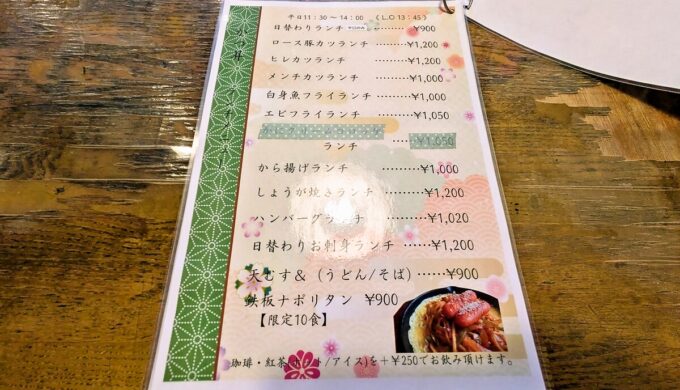 平日11:30〜14:00 (L.O 13:45)
日替わりランチ ………¥900
ロース豚カツランチ ……¥1,200
ヒレカツランチ ………¥1,200
メンチカツランチ ………¥1,000
白身魚フライランチ ……¥1,000
エビフライランチ ………¥1,050
ランチ ……¥1,050
から揚げランチ ………¥1,000
しょうが焼きランチ ……¥1,200
ハンバーグランチ ……¥1,020
日替わりお刺身ランチ ……¥1,200
天むす＆（うどん/そば）……¥900
鉄板ナポリタン ¥900
【限定10食】
珈琲・紅茶(ホット/アイス)を＋¥250でお飲み頂けます。